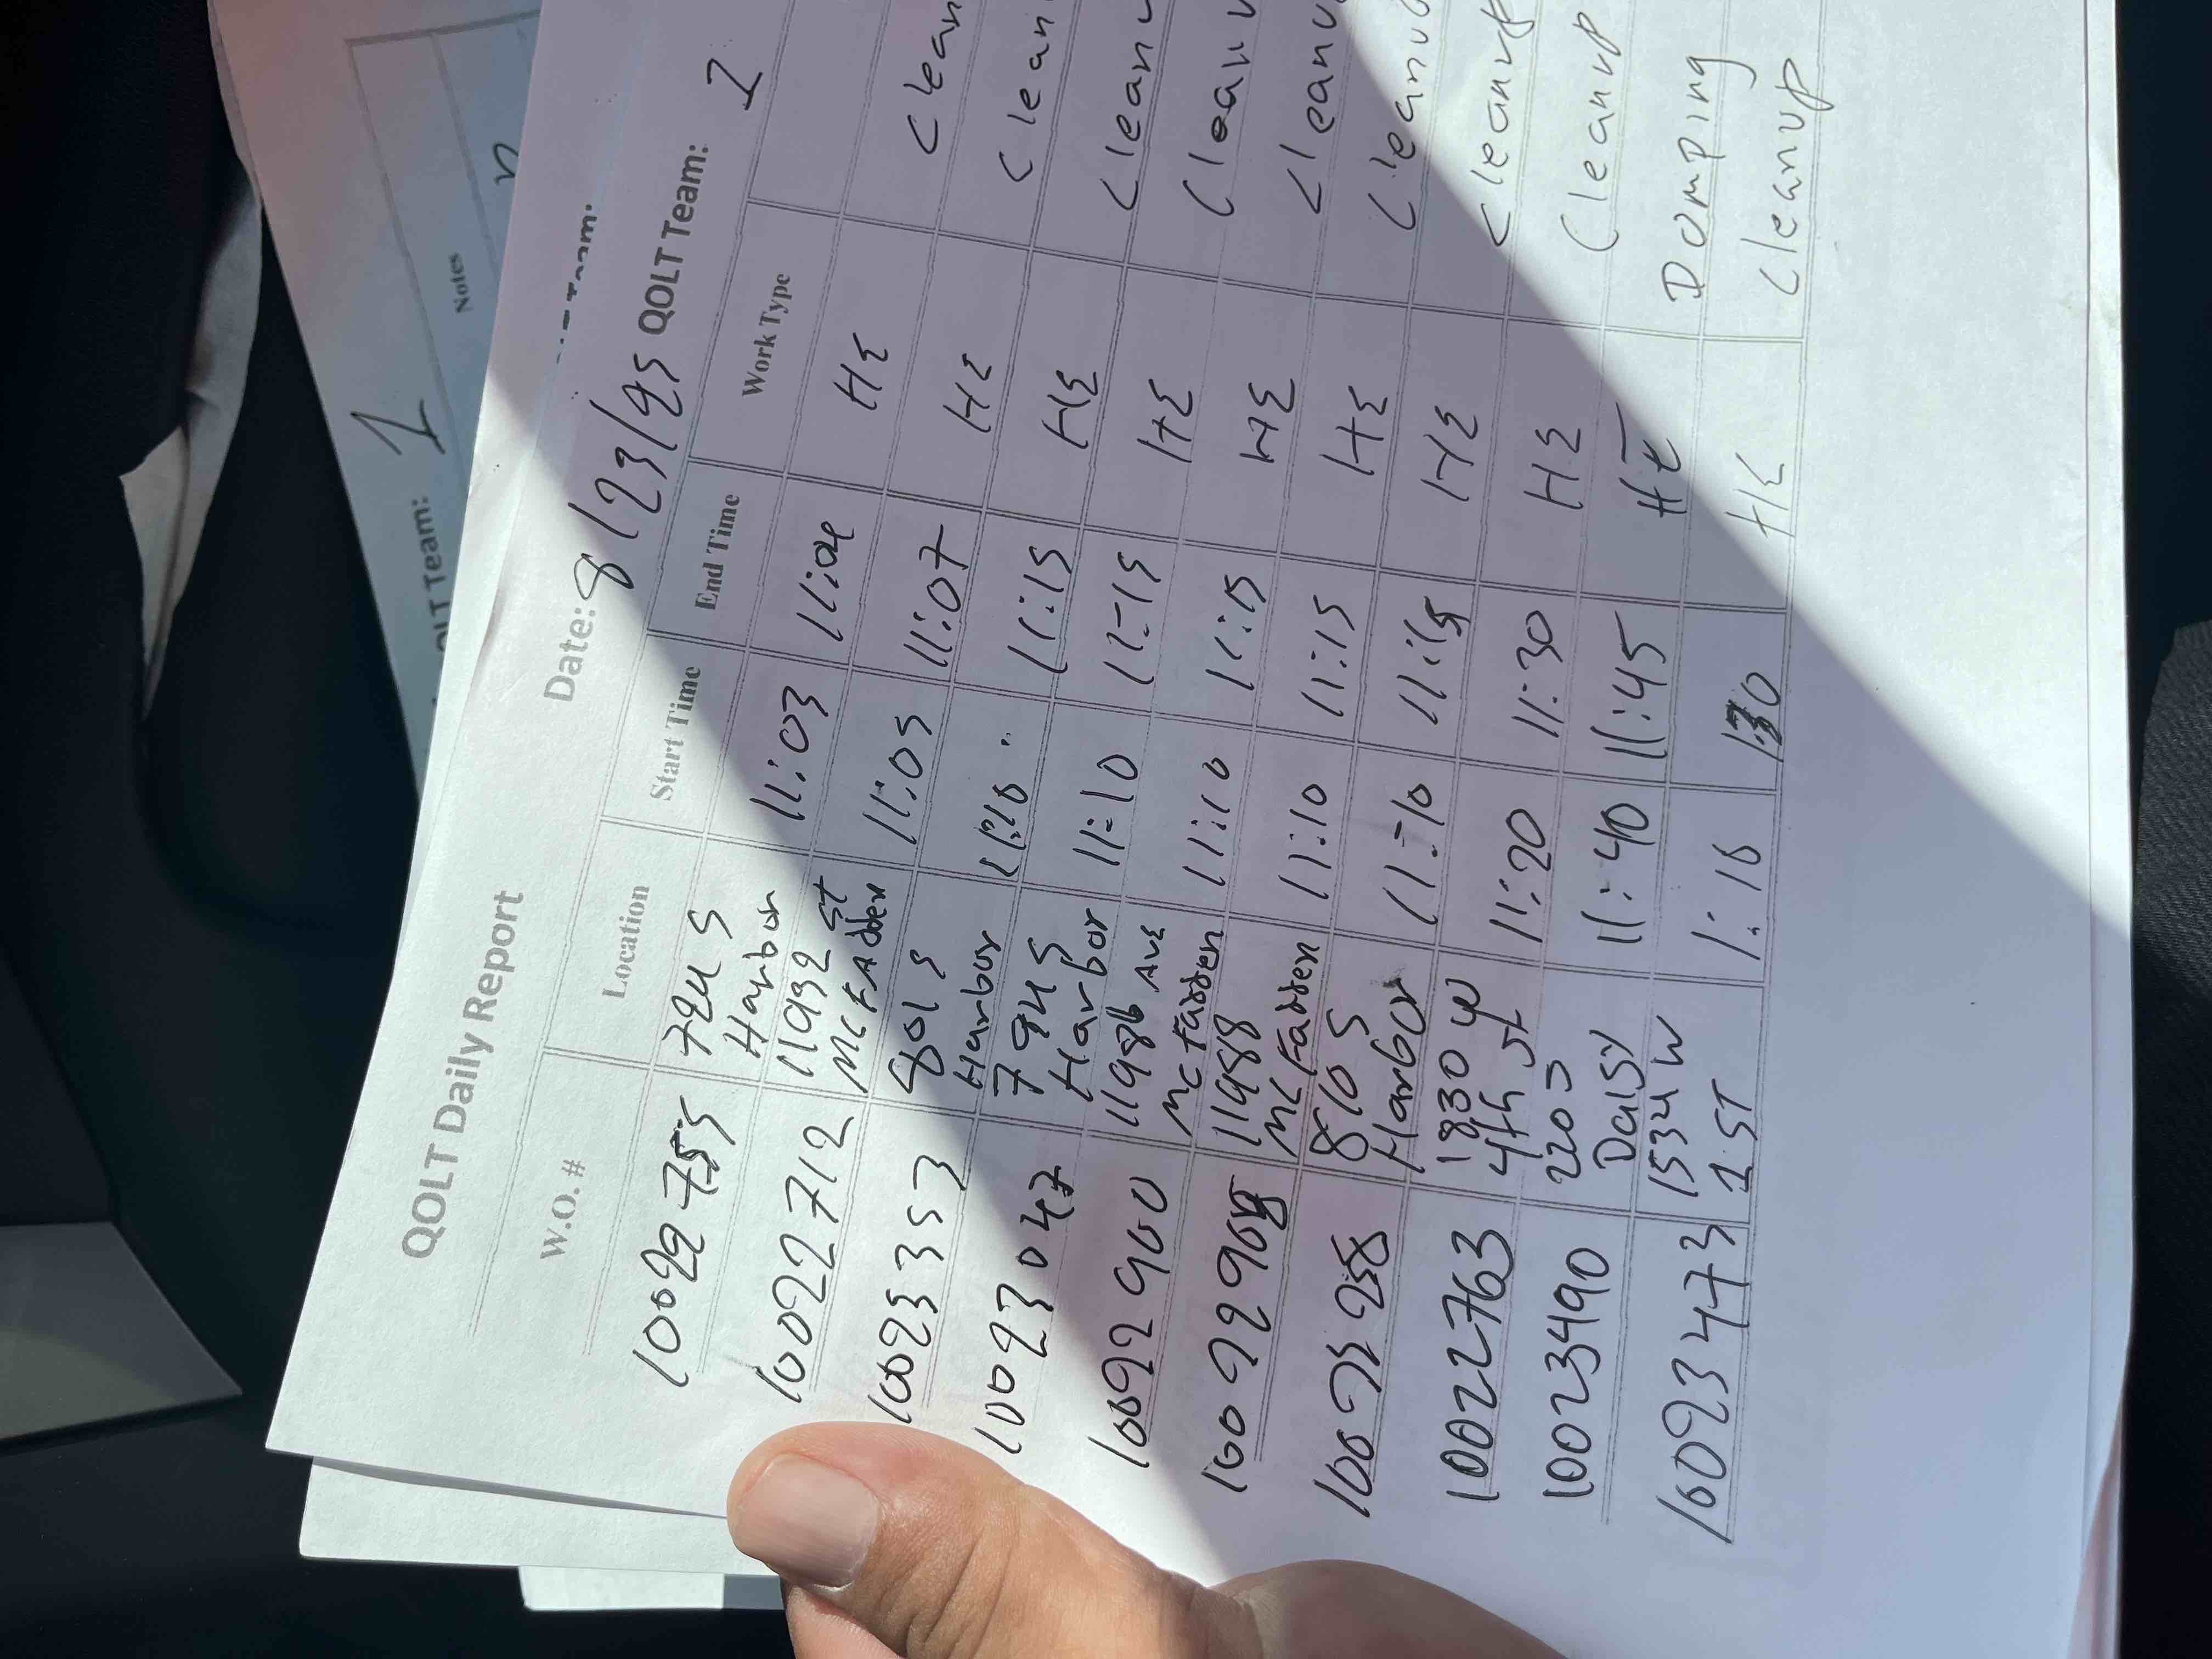 QOLT Daily Report
Date: 8/23/25 QOLT Team: 1
W.O. # Location Start Time End Time Work Type
10022755 724 S Harbor 11:03 11:04 HE Clean
10022712 11932 St McFadden 11:05 11:07 HE Clean
10023353 801 S Harbor 11:10 11:15 HE Cleanu
10023047 794 S Harbor 11:10 11:15 HE Clean
10022900 11986 Ave McFadden 11:10 11:15 HE Cleanu
11988 McFadden 11:10 11:15 HE Cleanu
810 S Harbor 11:10 11:15 HE Cleanup
10022763 1830 W 4th st 11:20 11:30 HE Cleanup
10023490 2203 Daisy 11:40 11:45 HE Dumping
10023473 1534 W 1 ST 1:10 1:30 HE Cleanup
OLT Team: 1
Notes